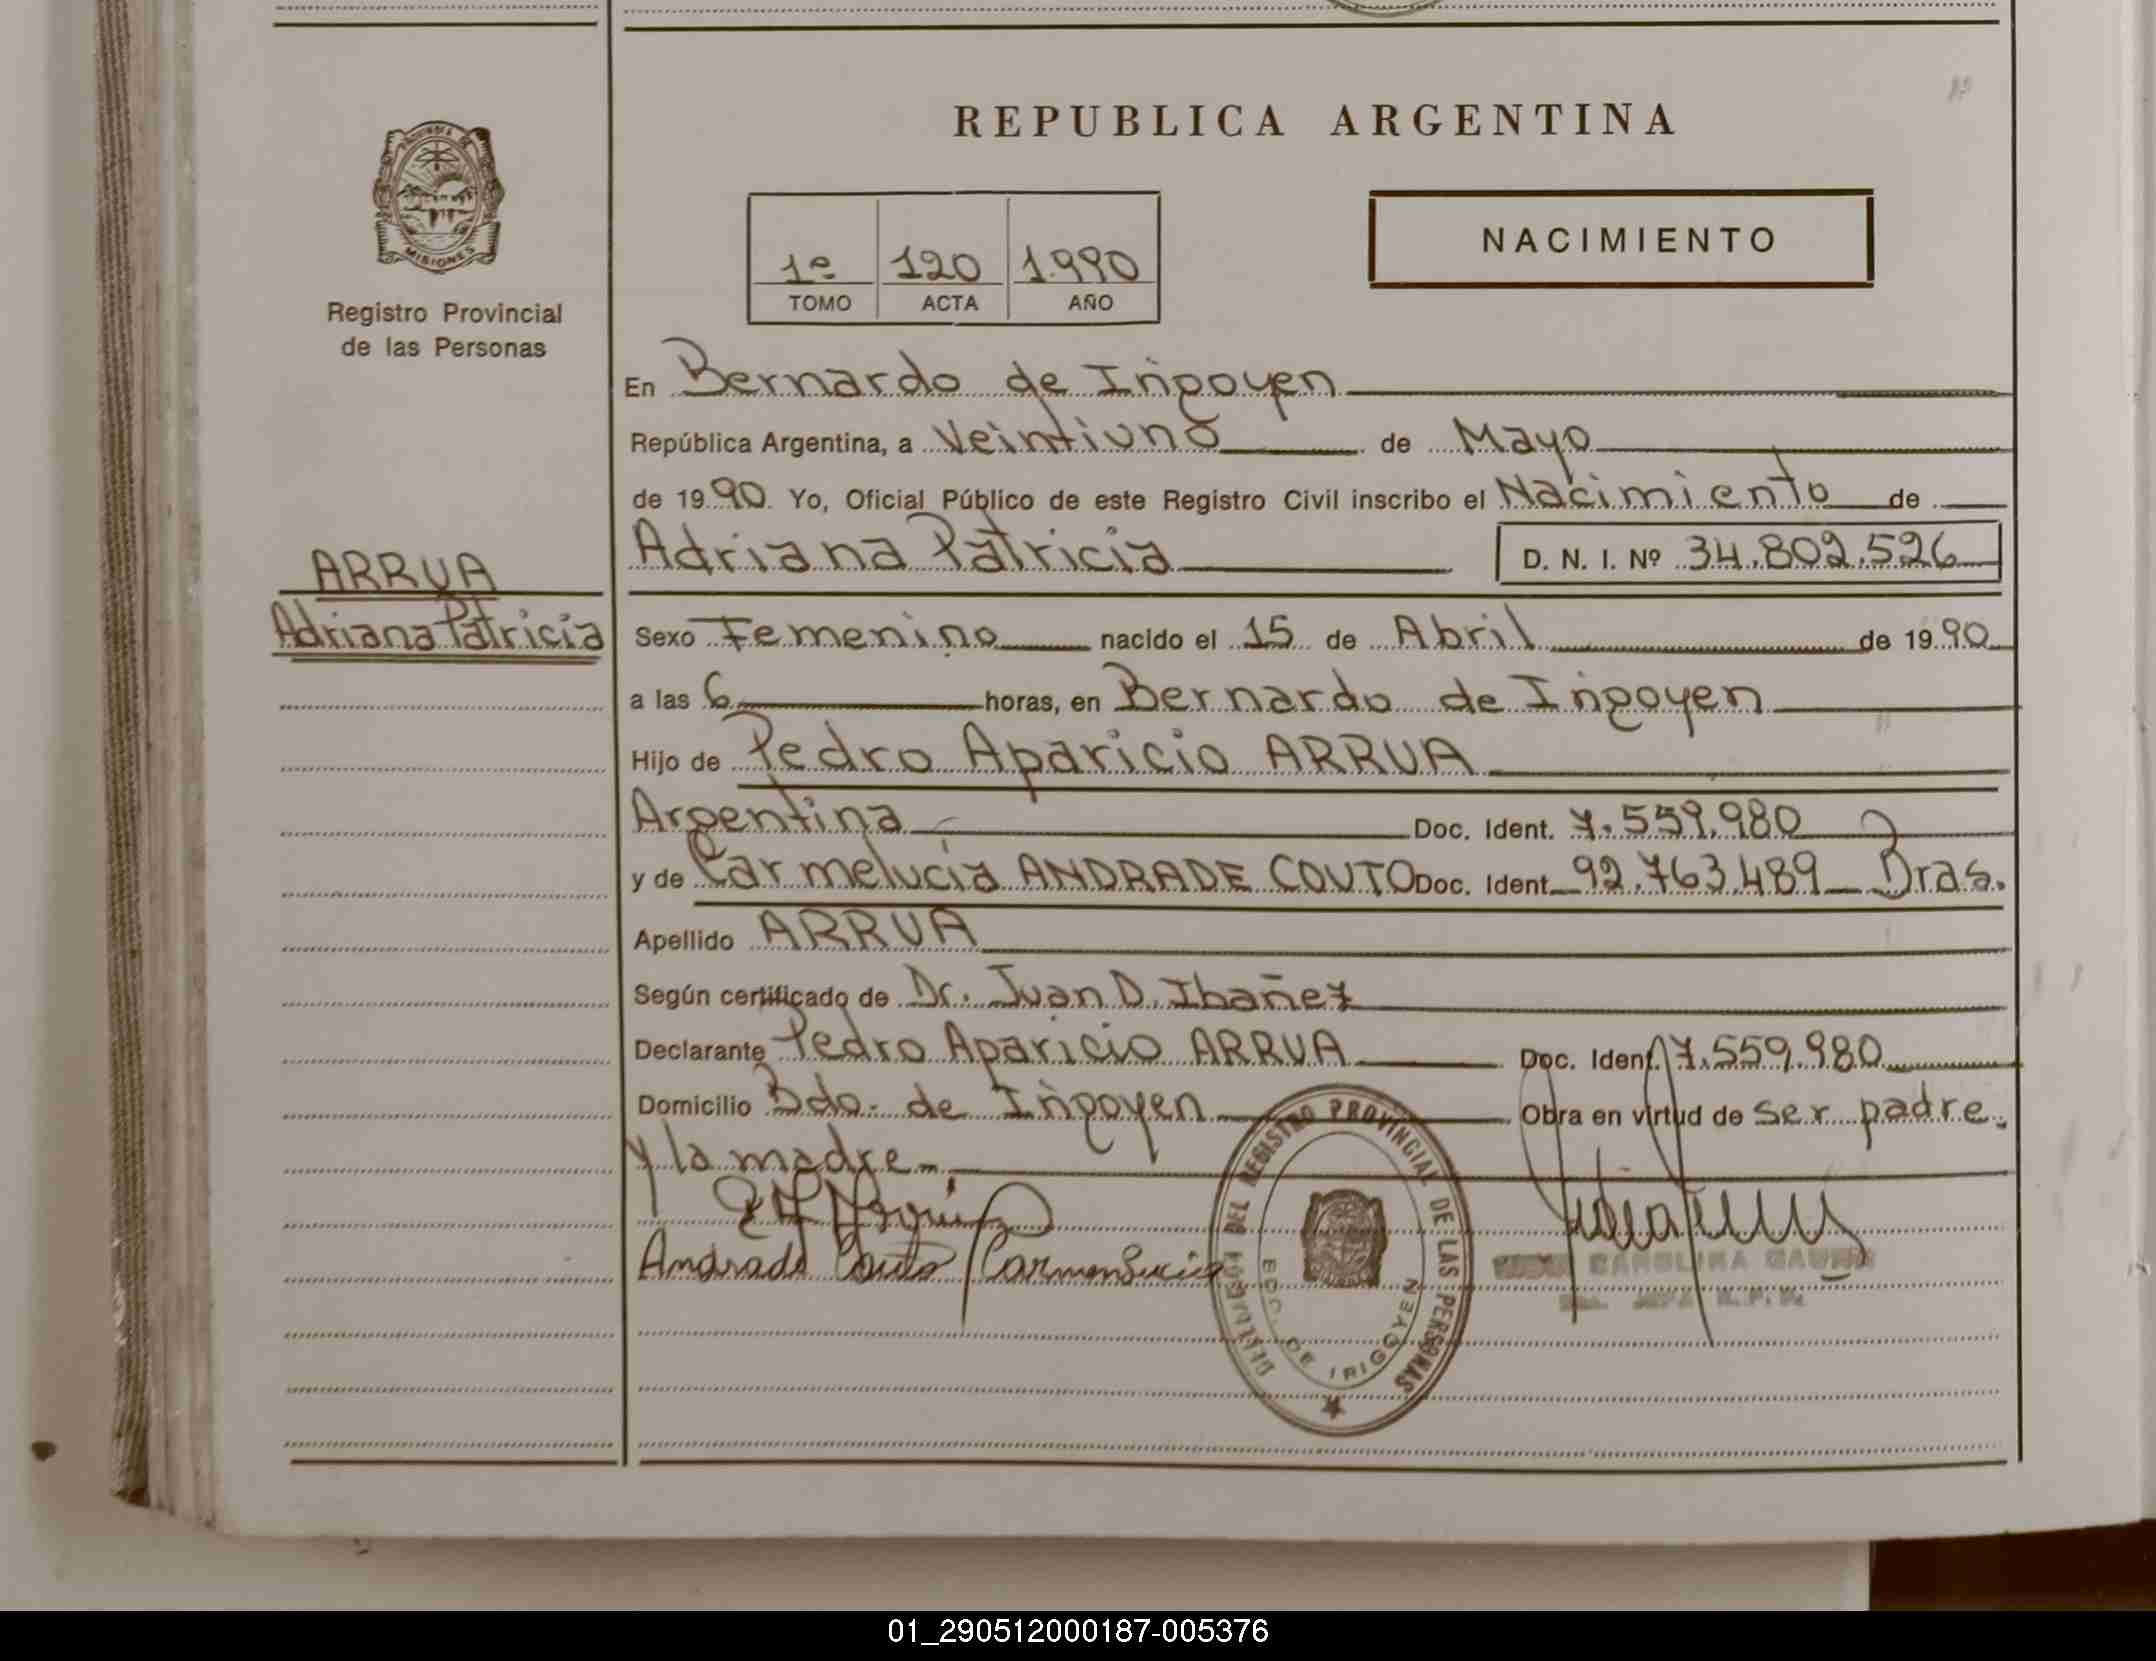 REPUBLICA ARGENTINA
MISIONES
Registro Provincial
de las Personas
NACIMIENTO
1º 120 1.990
TOMO ACTA AÑO
En Bernardo de Irigoyen
República Argentina, a Veintiuno de Mayo
de 1990 Yo, Oficial Público de este Registro Civil inscribo el Nacimiento de
Adriana Patricia D. N. I. Nº 34.802.526
ARRUA
Adriana Patricia
Sexo Femenino nacido el 15 de Abril de 1990
a las 6 horas, en Bernardo de Irigoyen
Hijo de Pedro Aparicio ARRUA
Argentina Doc. Ident. 7.559.980
y de Carmelucia ANDRADE COUTO Doc. Ident. 92.763.489 Bras.
Apellido ARRUA
Según certificado de Dr. Juan D. Ibañez
Declarante Pedro Aparicio ARRUA Doc. Ident. 7.559.980
Domicilio Bdo. de Irigoyen Obra en virtud de ser padre
y la madre
Andrade Couto Carmenlucia
DEL REGISTRO PROVINCIAL DE LAS PERSONAS
BDO. DE IRIGOYEN
CAROLINA
01_290512000187-005376